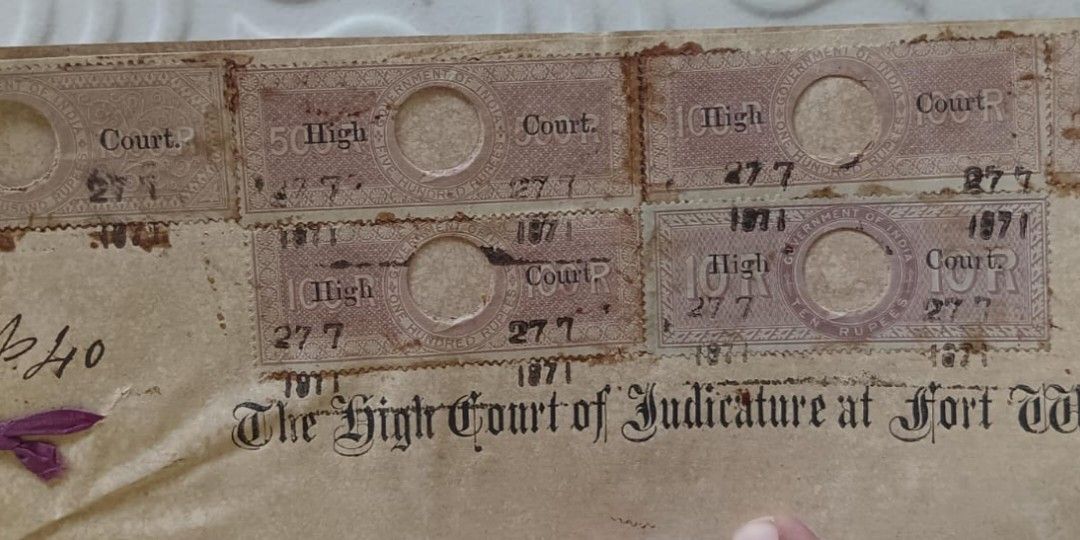 Court.
27 7
1871
500R High Court. 500R
GOVERNMENT OF INDIA
FIVE HUNDRED RUPEES
27 7 27 7
1871 1871
100R High Court. 100R
GOVERNMENT OF INDIA
ONE HUNDRED RUPEES
27 7 27 7
1871 1871
High Court. 100R
GOVERNMENT OF INDIA
ONE HUNDRED RUPEES
27 7 27 7
1871 1871
10R High Court. 10R
GOVERNMENT OF INDIA
TEN RUPEES
27 7 27 7
1871 1871
40
The High Court of Judicature at Fort W